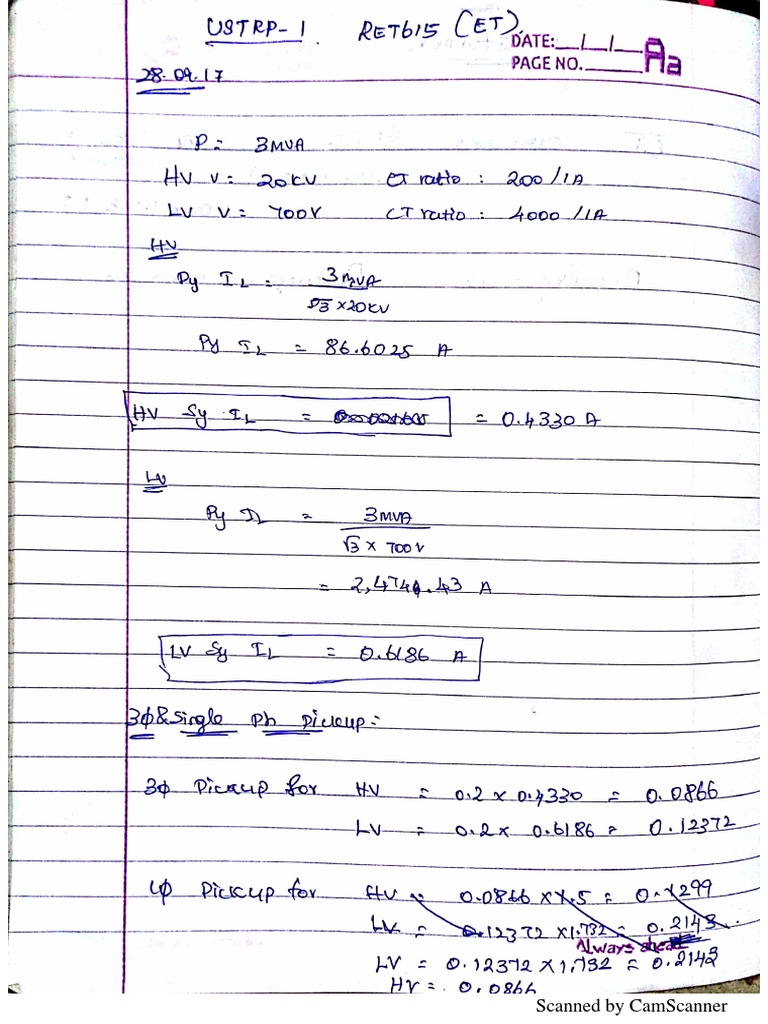 USTRP-1 RET615 (ET)
DATE:__/__/__
PAGE NO.______
Aa
28.09.17
P = 3MVA
HV V = 20KV CT ratio : 200/1A
LV V = 700V CT ratio : 4000/1A
HV
Py IL = 3MVA
√3 × 20KV
Py IL = 86.6025 A
HV Sy IL = = 0.4330 A
LV
Py IL = 3MVA
√3 × 700V
= 2,474.43 A
LV Sy IL = 0.6186 A
3φ & Single Ph Pickup:
3φ Pickup for HV = 0.2 × 0.4330 = 0.0866
LV = 0.2 × 0.6186 = 0.12372
1φ Pickup for HV = 0.0866 × 1.5 = 0.1299
LV = 0.12372 × 1.732 = 0.2143
Always ahead
LV = 0.12372 × 1.732 = 0.2142
HV = 0.0866
Scanned by CamScanner